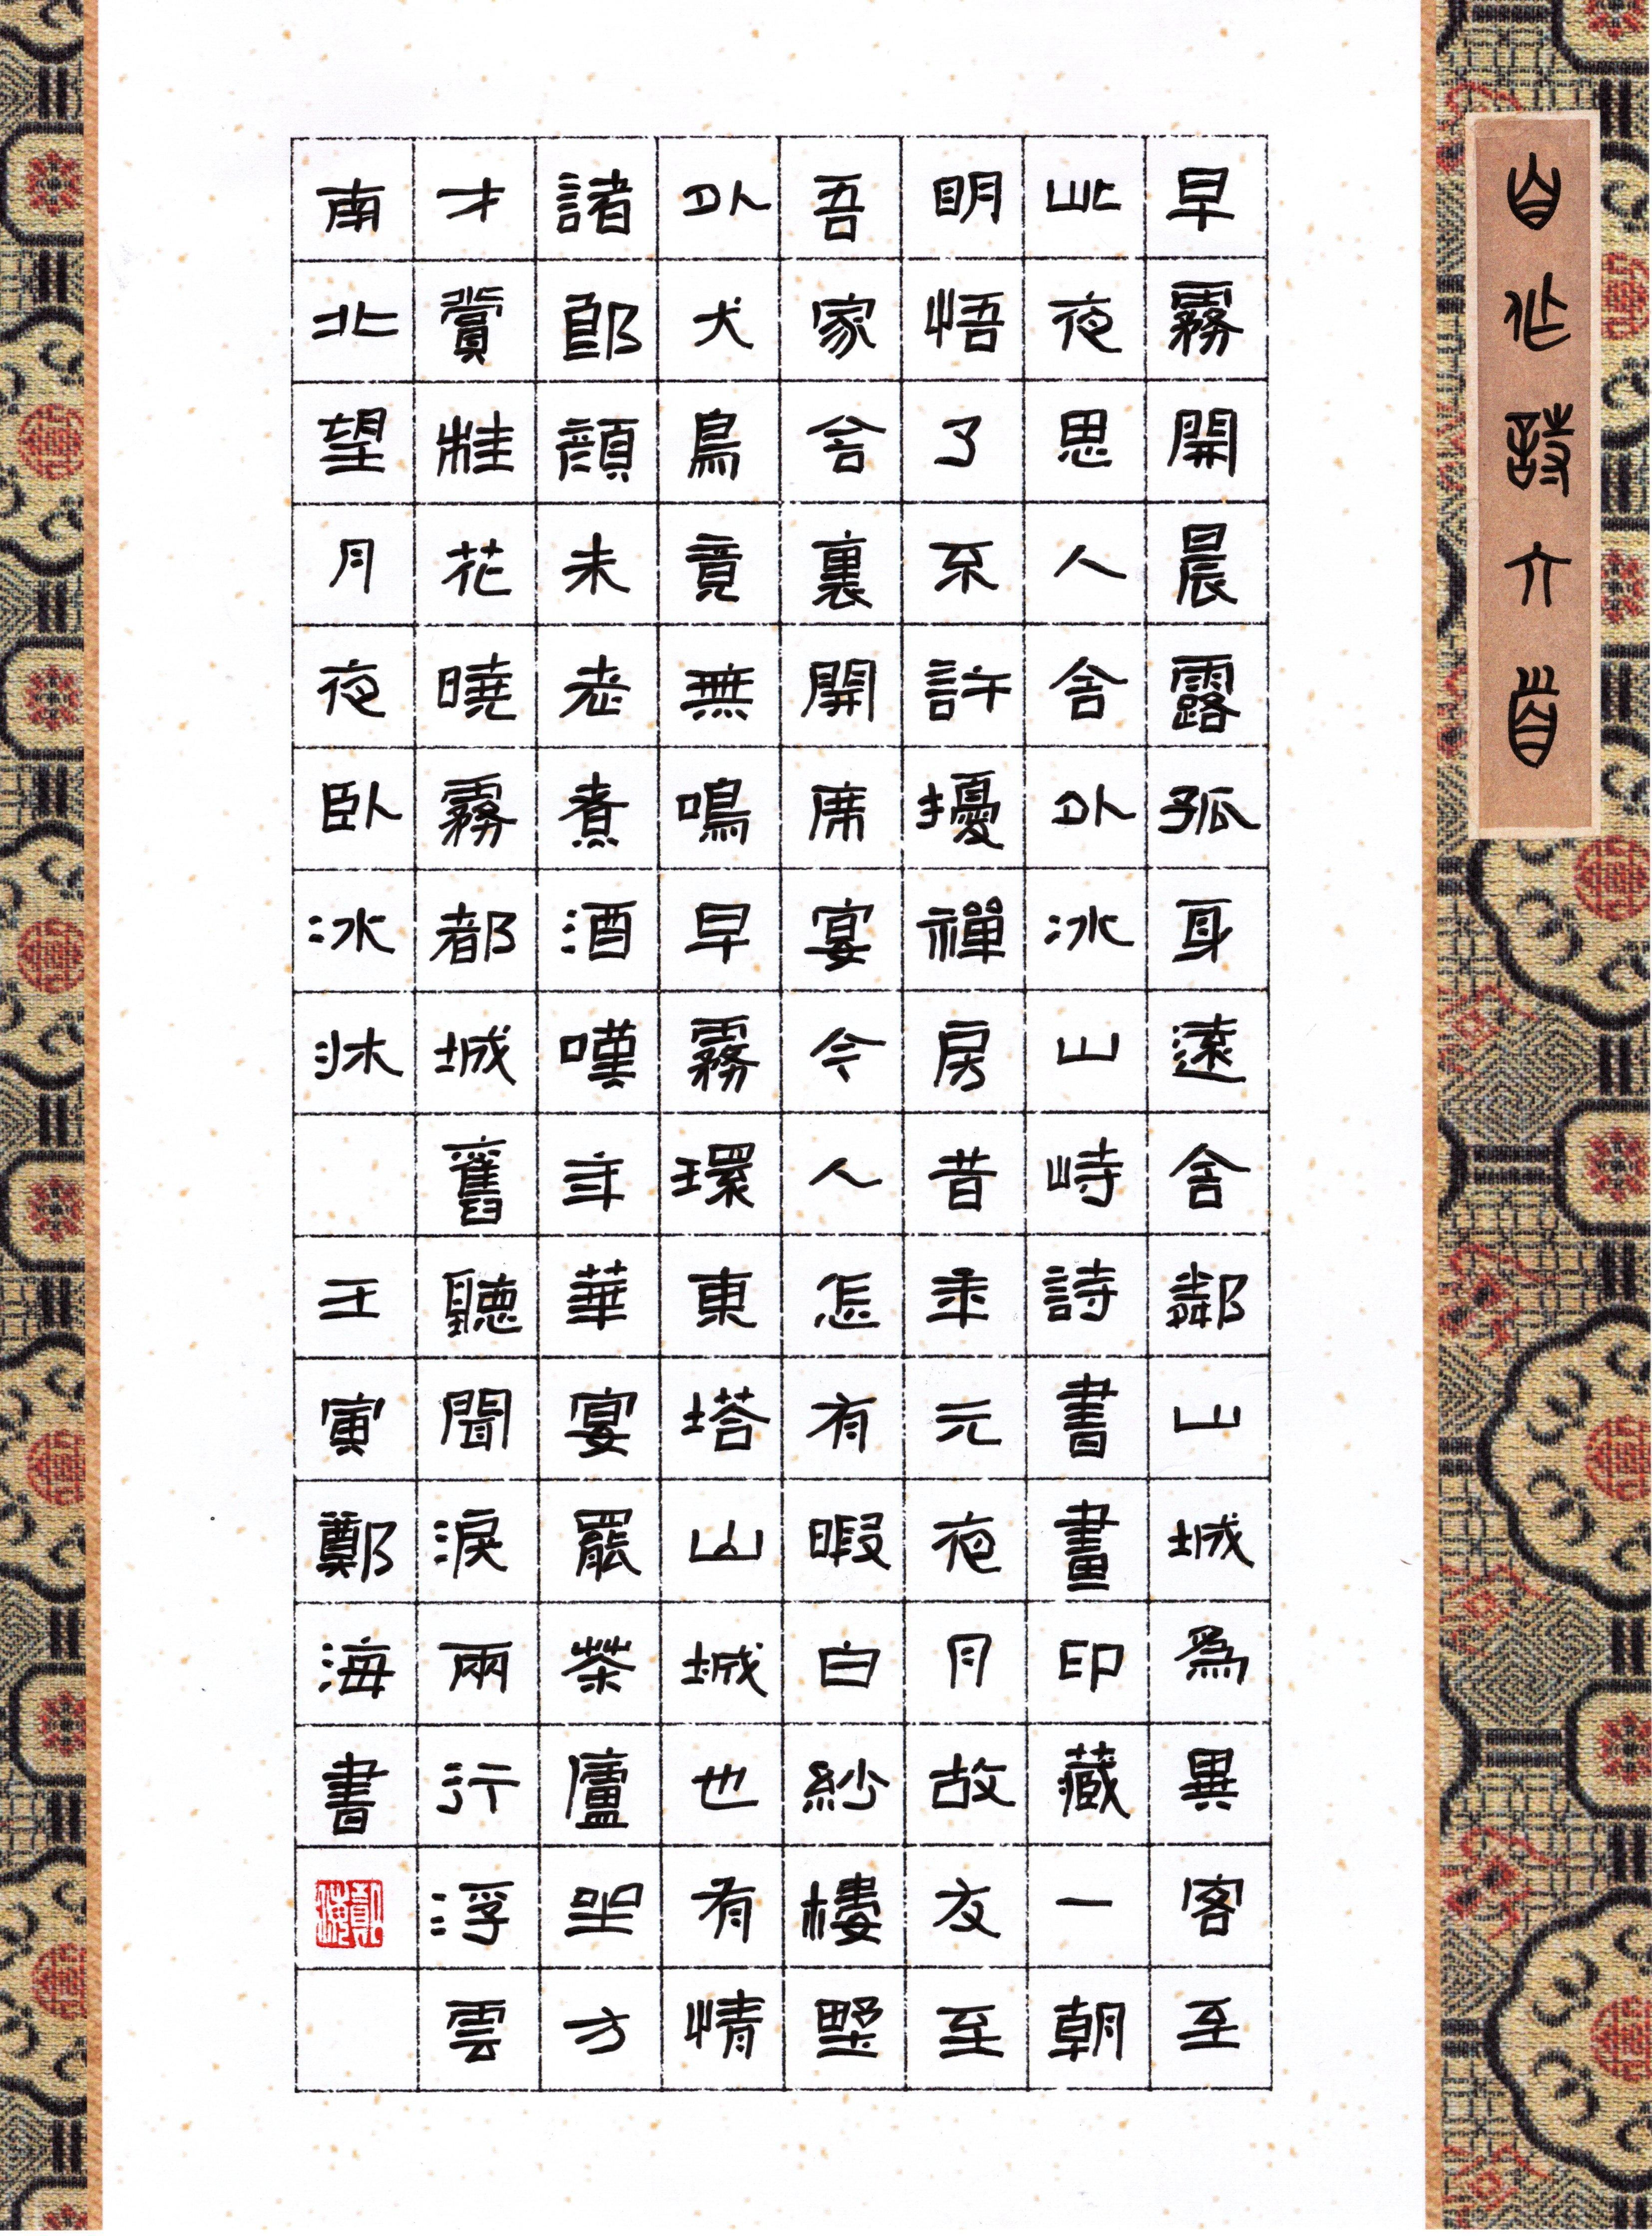 自作詩六首
早霧開晨露孤身遠舍鄰山城爲異客至
此夜思人舍外冰山峙詩書畫印藏一朝
明悟了不許擾禪房昔年元夜月故友至
吾家舍裏開席宴今人怎有暇白紗樓墅
外犬鳥竟無鳴早霧環東塔山城也有情
諸郎顏未老煮酒嘆年華宴罷茶廬坐方
才賞桂花曉霧都城舊聽聞淚兩行浮雲
南北望月夜臥冰牀 壬寅鄭海書
鄭海